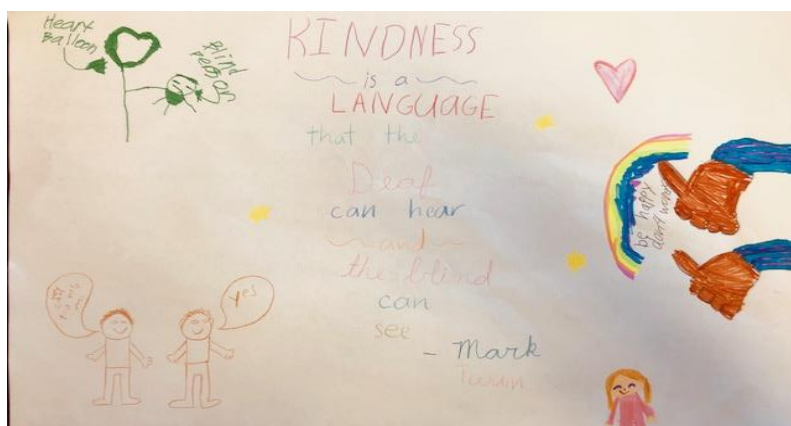 Heart
Balloon
Blind
person
KINDNESS
is a
LANGUAGE
that the
Deaf
can hear
and
the blind
can
see
- Mark
Twain
be happy
don't worry
yes